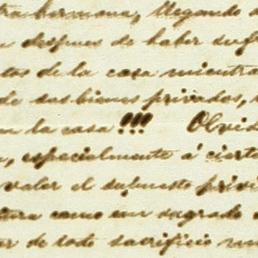 tra hermana, llegando a
a despues de haber suf
tos de la casa mientra
de sus bienes privados,
en la casa !!! Olvid
, especialmente á cierto
valer el supuesto privi
tura como un sagrado
er de todo sacrificio